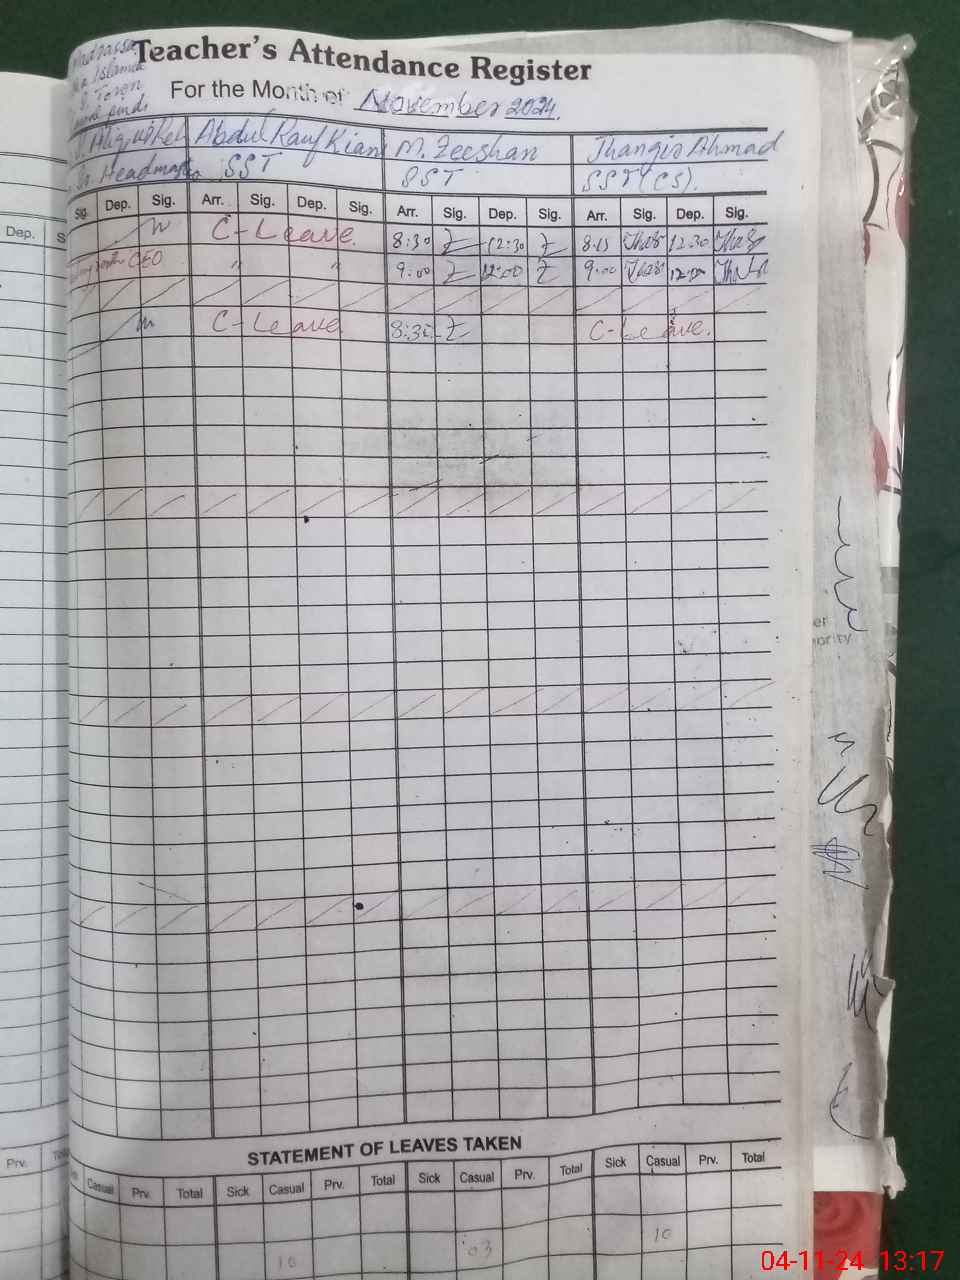 Teacher's Attendance Register
For the Month of November 2024.
Abdul Rauf Kiani M. Zeeshan Jhangir Ahmad
Sr. Headmaster SST SST SST (CS).
Dep. S Sig. Dep. Sig. Arr. Sig. Dep. Sig. Arr. Sig. Dep. Sig. Arr. Sig. Dep. Sig.
C-Leave. 8:30 Z 12:30 Z 8:15 12:30
CEO " " 9:00 Z 12:00 Z 9:00 12:00
C-Leave 8:30 Z C-Leave.
STATEMENT OF LEAVES TAKEN
Prv. Casual Prv. Total Sick Casual Prv. Total Sick Casual Prv. Total Sick Casual Prv. Total
10 03 10
04-11-24 13:17